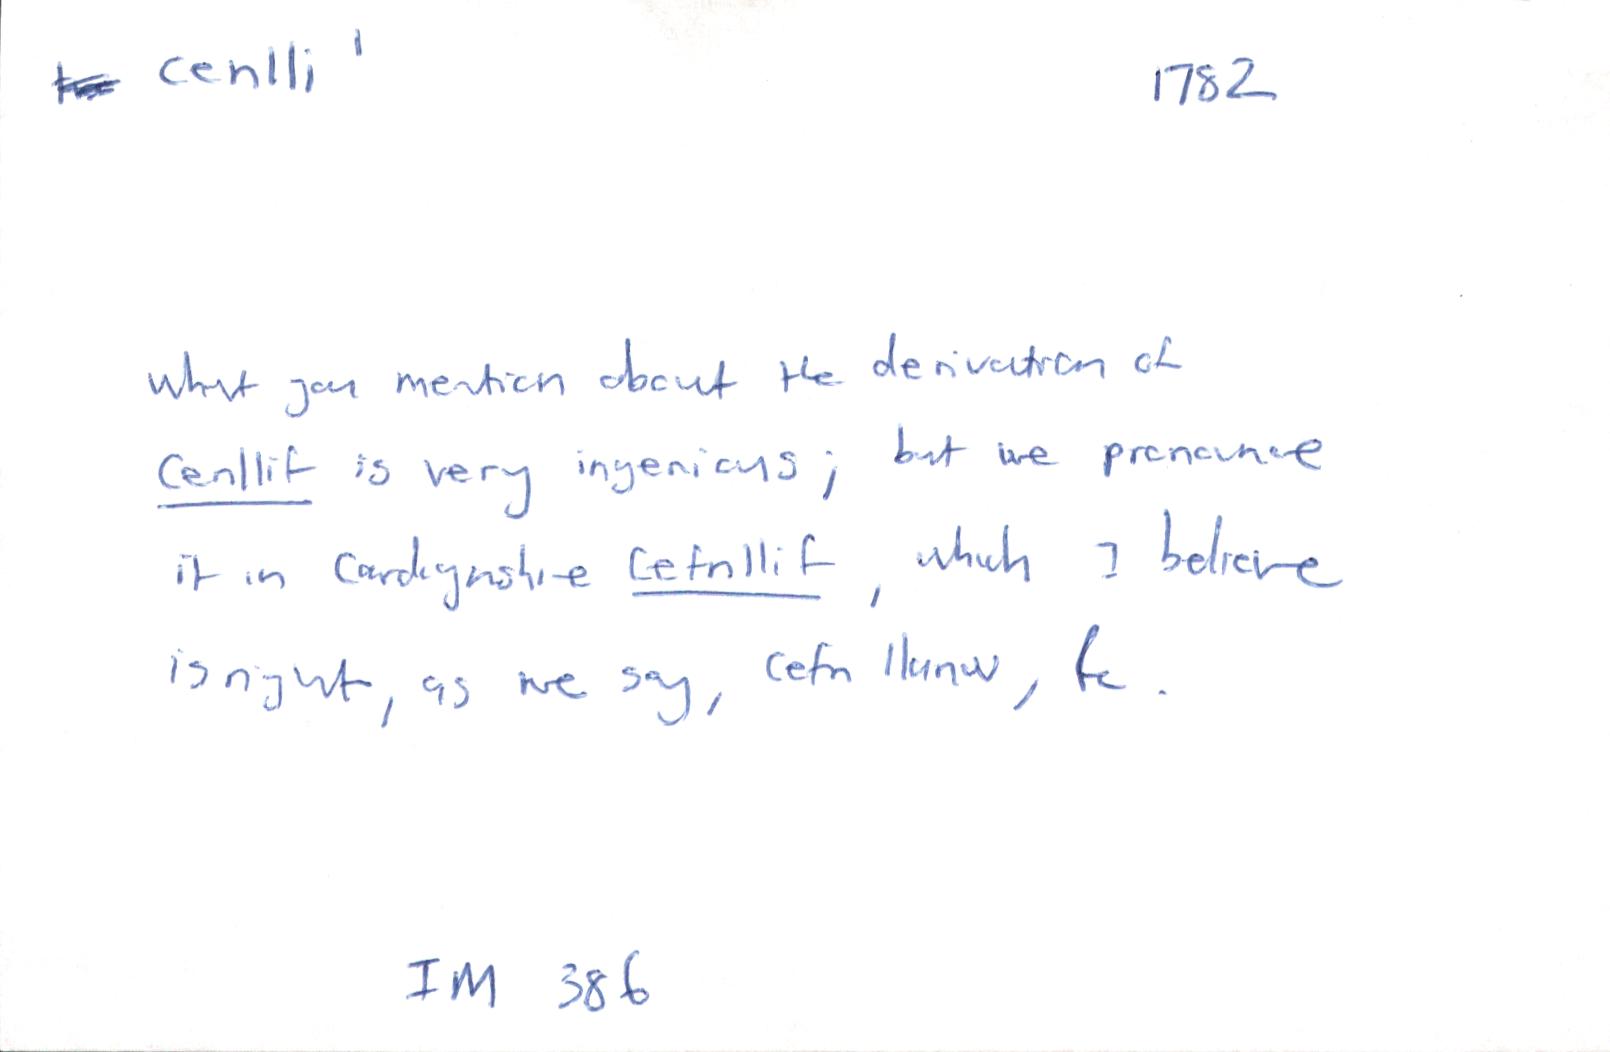 cenlli 1
1782
What you mention about the derivation of
Cenllif is very ingenious; but we pronounce
it in Cardiganshire Cefnllif, which I believe
is right, as we say, cefn llanw, &c.
IM 386